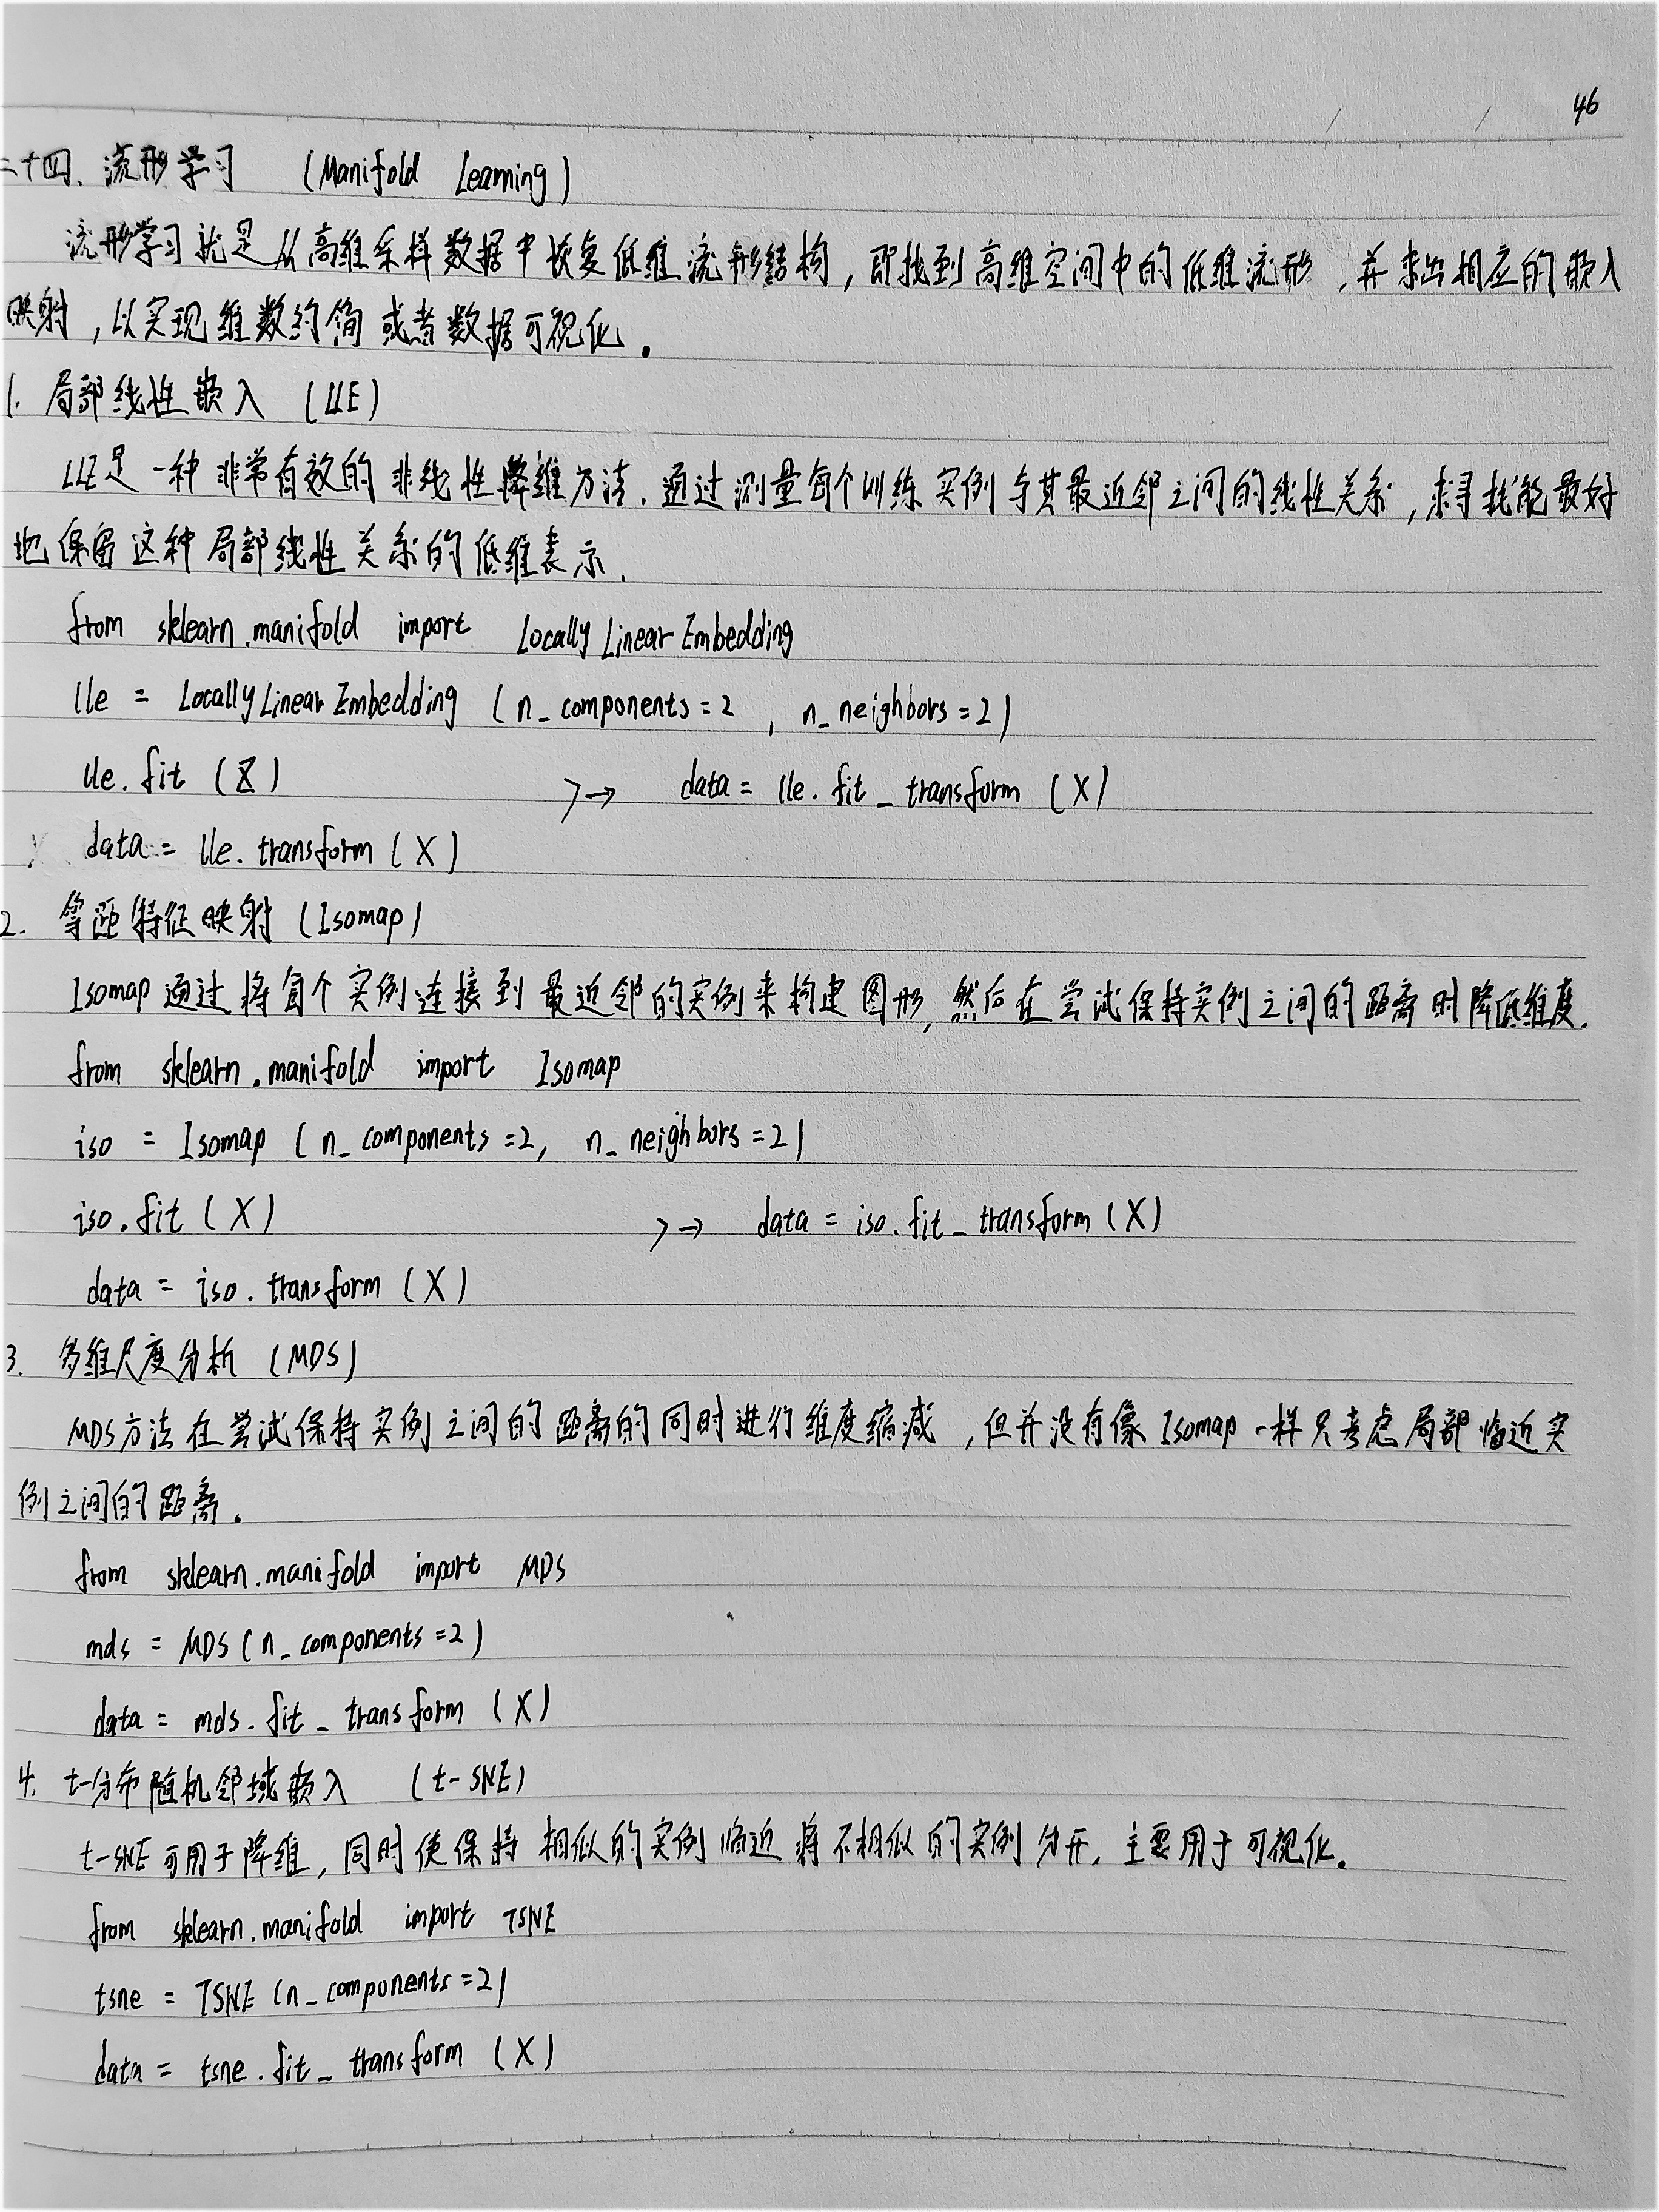 46
二十四、流形学习 (Manifold Learning)
流形学习就是从高维采样数据中恢复低维流形结构，即找到高维空间中的低维流形，并求出相应的嵌入
映射，以实现维数约简或者数据可视化。
1. 局部线性嵌入 (LLE)
LLE是一种非常有效的非线性降维方法.通过测量每个训练实例与其最近邻之间的线性关系，寻找能最好
地保留这种局部线性关系的低维表示.
from sklearn.manifold import LocallyLinearEmbedding
lle = LocallyLinearEmbedding (n_components=2, n_neighbors=2)
lle.fit (X) >→ data = lle.fit_transform (X)
data = lle.transform (X)
2. 等距特征映射 (Isomap)
Isomap通过将每个实例连接到最近邻的实例来构建图形,然后在尝试保持实例之间的距离时降低维度.
from sklearn.manifold import Isomap
iso = Isomap (n_components=2, n_neighbors=2)
iso.fit (X) >→ data = iso.fit_transform (X)
data = iso.transform (X)
3. 多维尺度分析 (MDS)
MDS方法在尝试保持实例之间的距离的同时进行维度缩减，但并没有像Isomap一样只考虑局部临近实
例之间的距离.
from sklearn.manifold import MDS
mds = MDS (n_components=2)
data = mds.fit_transform (X)
4. t-分布随机邻域嵌入 (t-SNE)
t-SNE可用于降维，同时使保持相似的实例临近将不相似的实例分开，主要用于可视化。
from sklearn.manifold import TSNE
tsne = TSNE (n_components=2)
data = tsne.fit_transform (X)